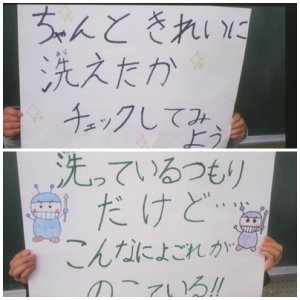 ちゃんときれいに
洗えたか
チェックしてみ
よう
洗っているつもり
だけど‥‥
こんなによごれが
のこている!!